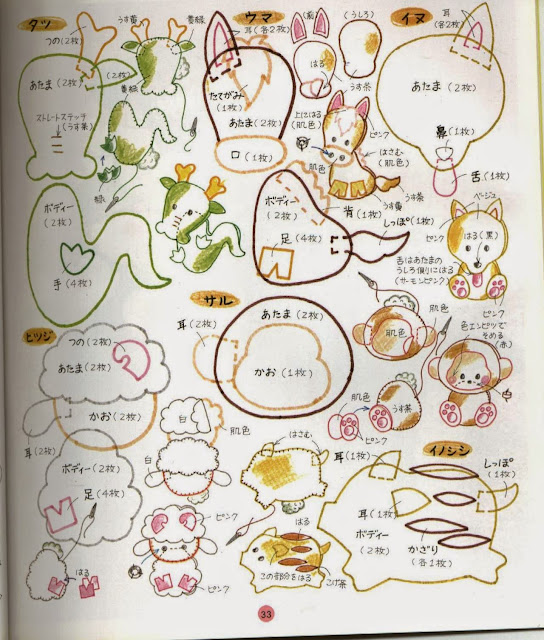 タツ
つの(2枚)
うす黄
黄緑
あたま(2枚)
(2枚)
ストレートステッチ
(うす茶)
黄緑
ボディー
(2枚)
緑
手(4枚)
ウマ
耳(各2枚)
(前)
(うしろ)
はる
うす茶
たてがみ
(1枚)
あたま(2枚)
口(1枚)
上にはる
(肌色)
ピンク
はさむ
(肌色)
肌色
うす黄
うす茶
ボディー
(2枚)
背(1枚)
しっぽ(1枚)
足(4枚)
イヌ
耳
(各2枚)
あたま(2枚)
鼻(1枚)
舌(1枚)
ベージュ
ピンク
はる(黒)
舌はあたまの
うしろ側にはる
(サーモンピンク)
ピンク
ヒツジ
つの(2枚)
あたま(2枚)
かお(2枚)
耳(2枚)
ボディー(2枚)
足(4枚)
はる
白
肌色
白
ピンク
ピンク
サル
耳(2枚)
あたま(2枚)
かお(1枚)
肌色
肌色
うす茶
肌色
ピンク
色エンピツで
そめる
(赤)
イノシシ
はさむ
耳(1枚)
しっぽ
(1枚)
耳(1枚)
ボディー
(2枚)
かざり
(各1枚)
はる
この部分をはる
こげ茶
33